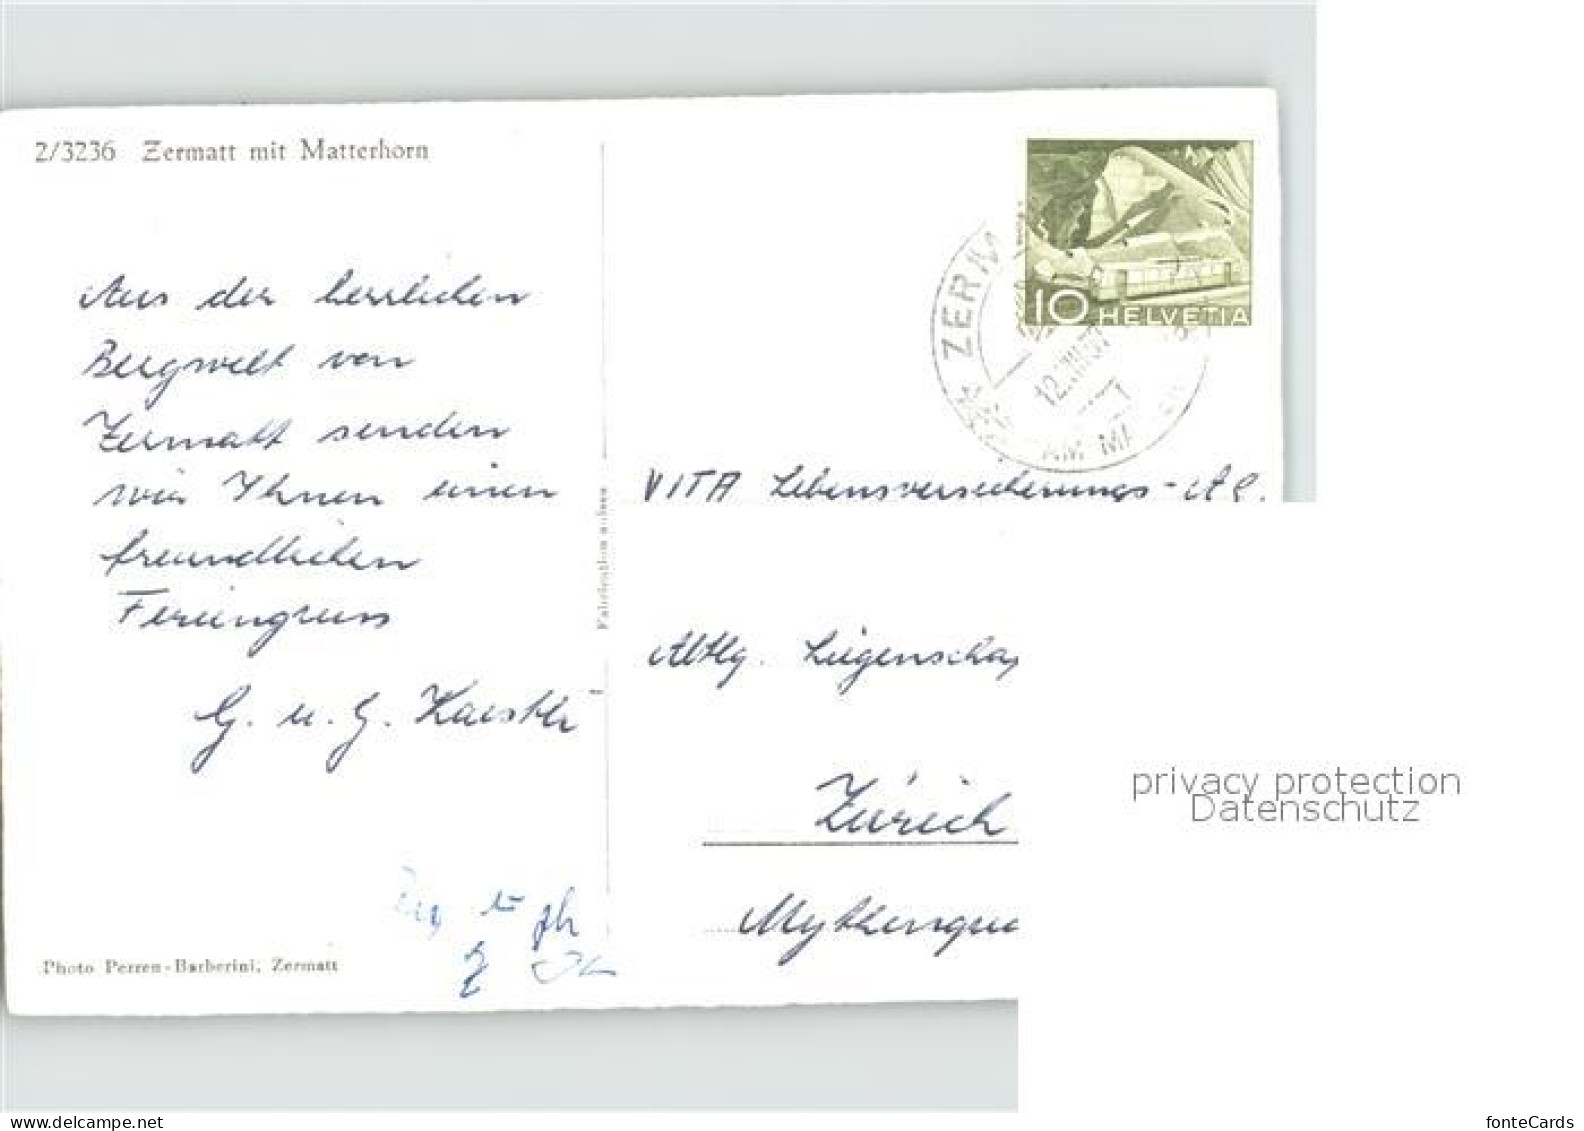 2/3236 Zermatt mit Matterhorn
Aus der herrlichen
Bergwelt von
Zermatt senden
wir Ihnen einen
freundlichen
Feriengruss
G. u. G. Kaestli
Photo Perren-Barberini, Zermatt
10 HELVETIA
ZERM
AM MA
VITA Lebensversicherungs-AG.
Abtlg. Liegenscha
Zürich
Mythenqua
privacy protection
Datenschutz
www.delcampe.net
fonteCards